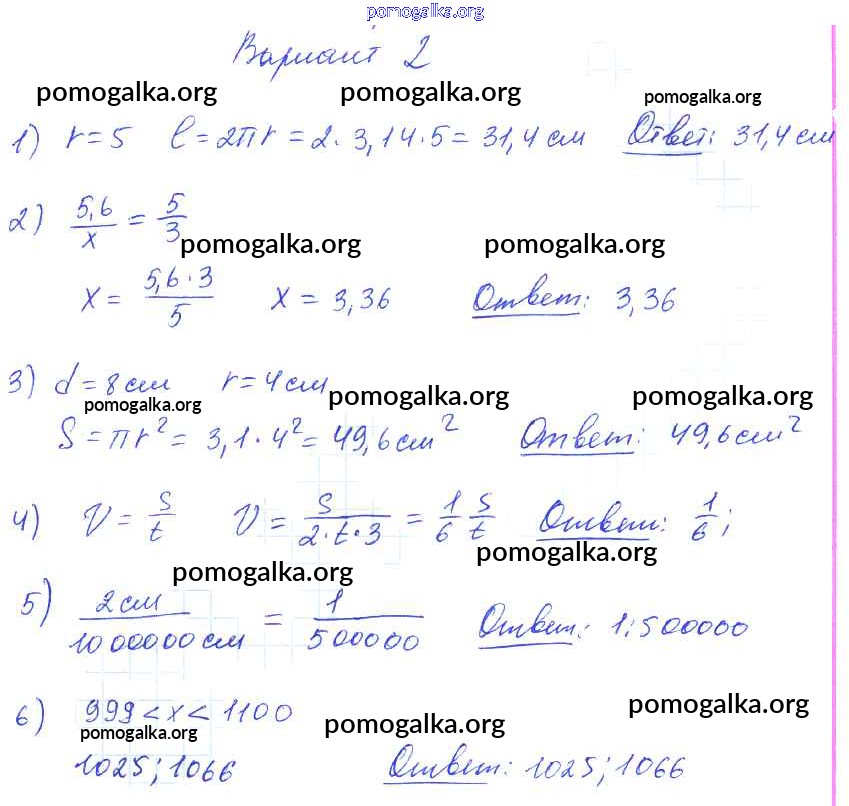 pomogalka.org
Вариант 2
pomogalka.org pomogalka.org pomogalka.org
1) r = 5 l = 2πr = 2 · 3,14 · 5 = 31,4 см Ответ: 31,4 см
2) 5,6/x = 5/3
pomogalka.org pomogalka.org
x = 5,6 · 3/5 x = 3,36 Ответ: 3,36
3) d = 8 см r = 4 см
pomogalka.org pomogalka.org pomogalka.org
S = πr² = 3,1 · 4² = 49,6 см² Ответ: 49,6 см²
4) V = S/t V = S/2·t·3 = 1/6 S/t Ответ: 1/6;
pomogalka.org pomogalka.org
5) 2 см/1000000 см = 1/500000 Ответ: 1:500000
6) 999 < x < 1100
pomogalka.org pomogalka.org pomogalka.org
1025; 1066 Ответ: 1025; 1066